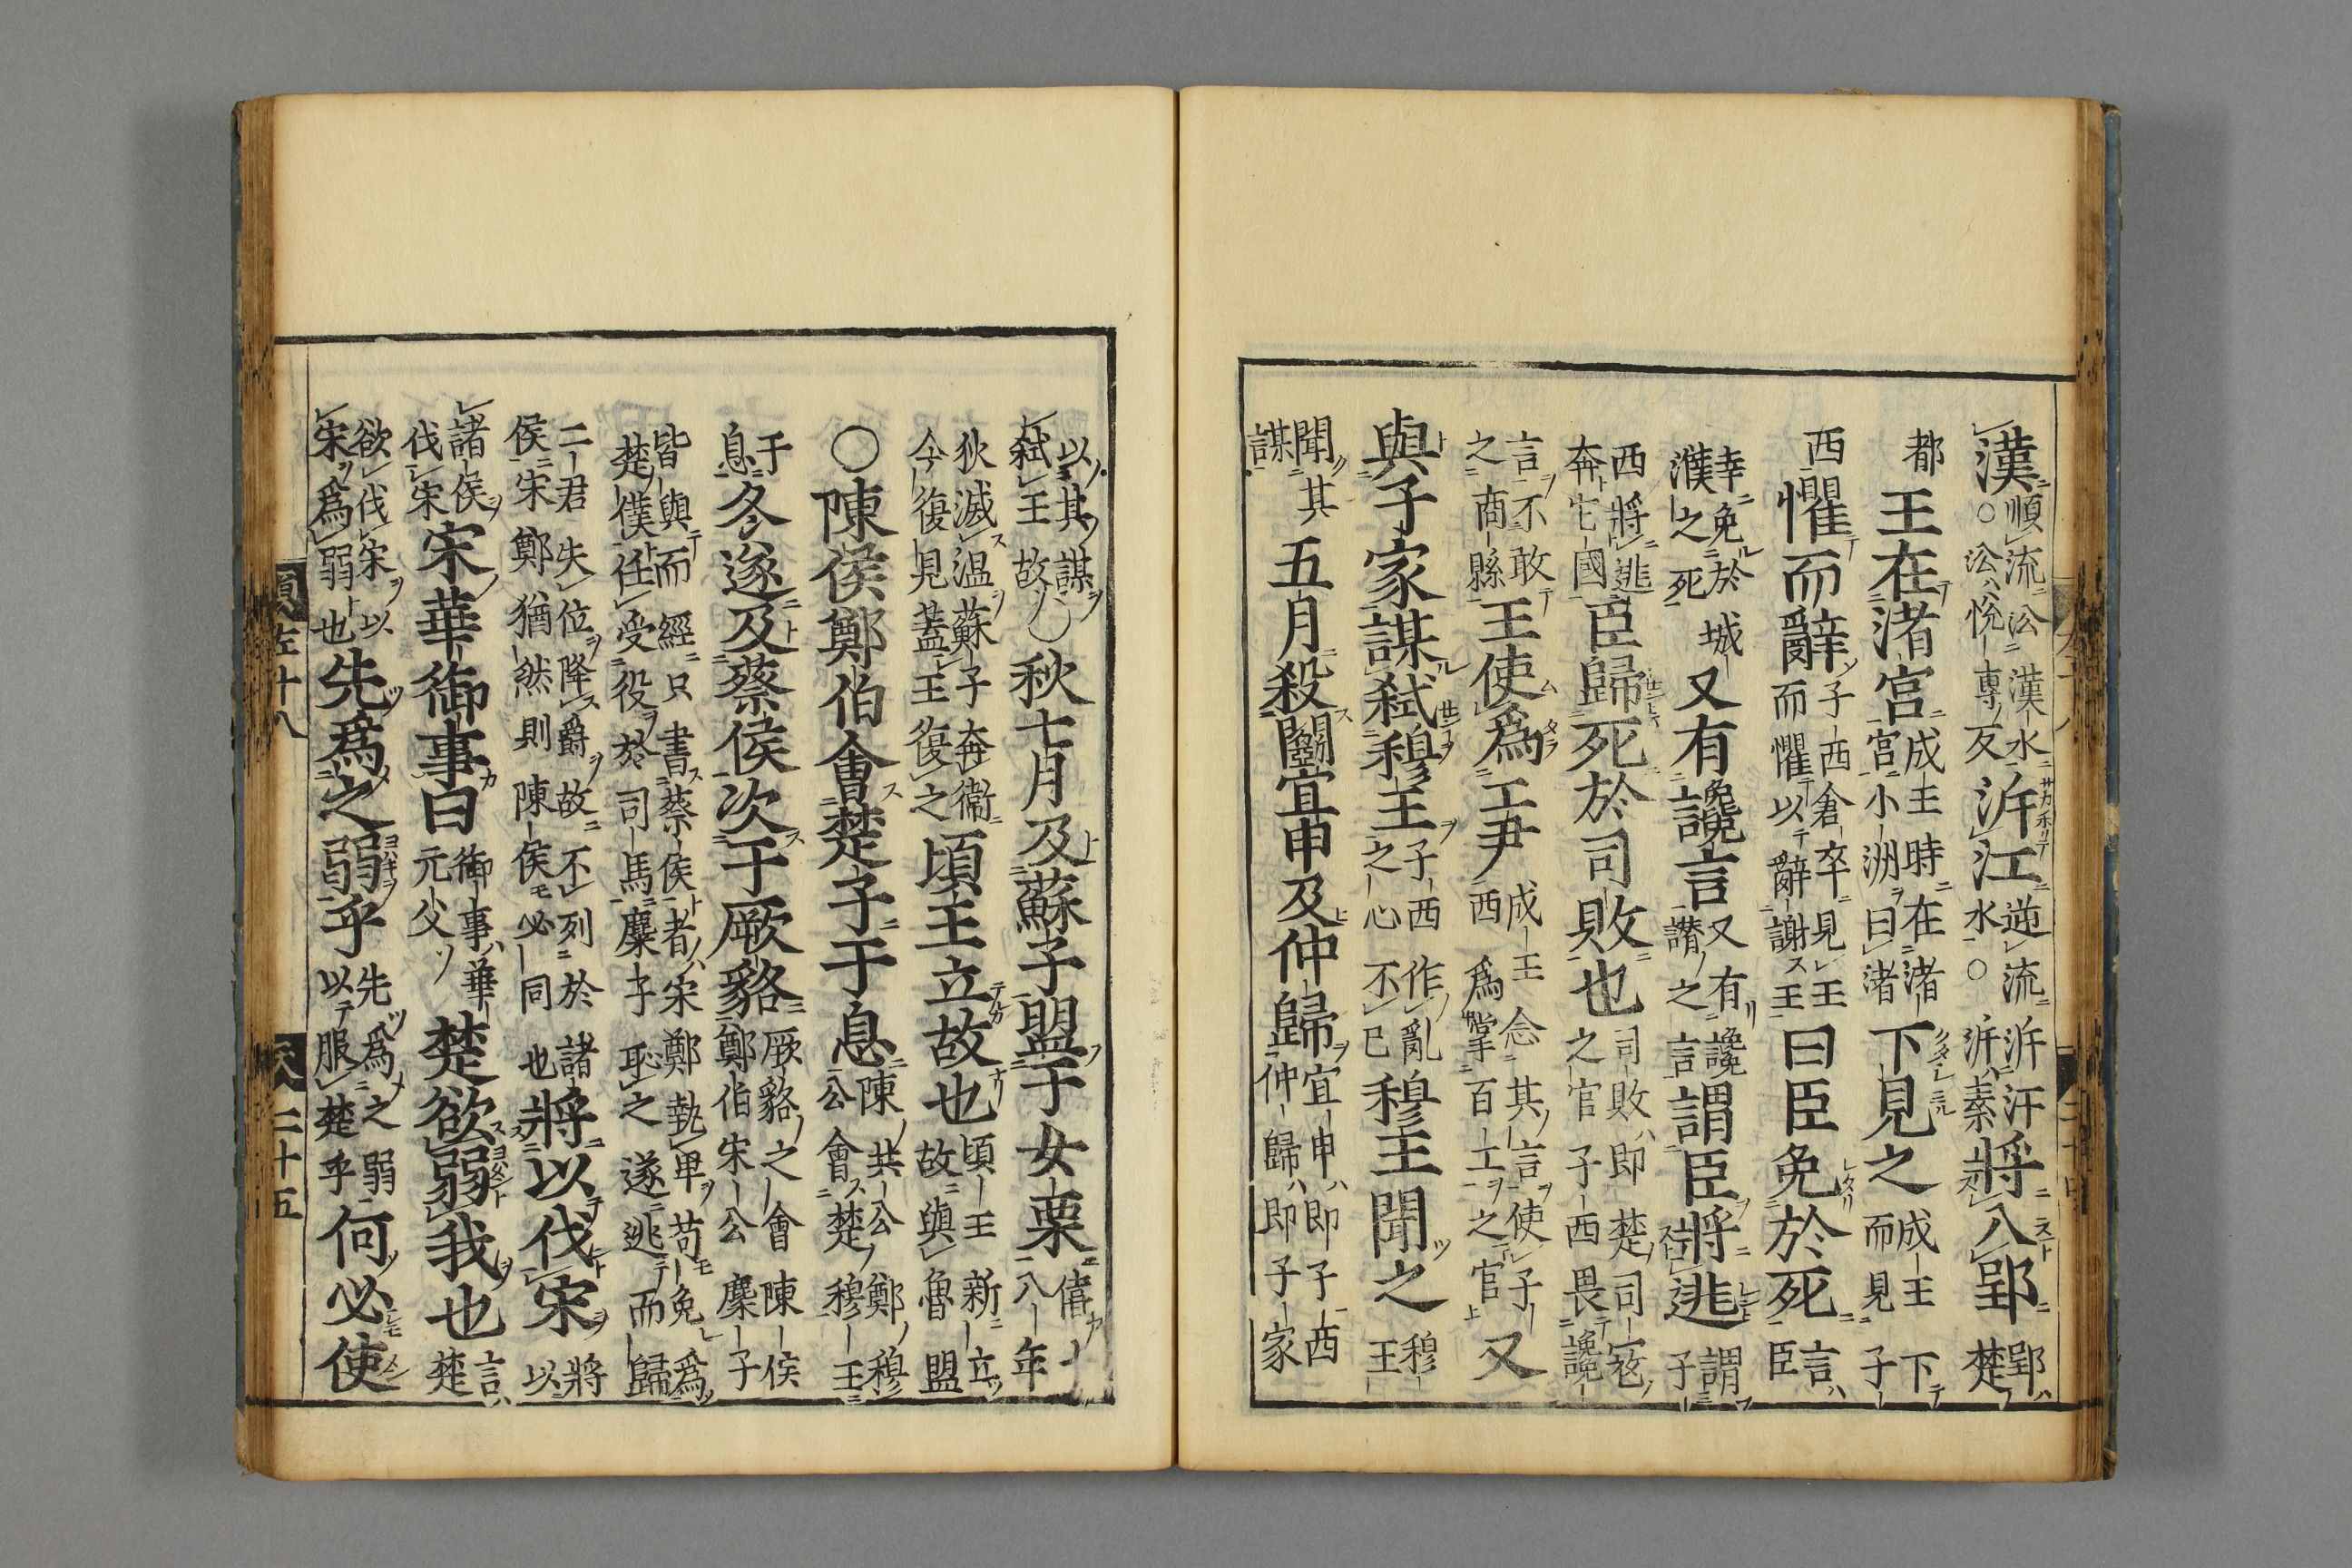 漢順流㳂漢水○㳂悅專反泝江逆流泝汙水○泝素將入郢郢楚
都王在渚宮成王時在渚宮小洲曰渚下見之成王下而見子
西懼而辭子西倉卒見王而懼以辭謝王曰臣免於死言臣
幸免於城濮之死又有讒言又有讒譖之言謂臣將逃謂子
西將逃奔它國臣歸死於司敗也司敗即楚司宼之官子西畏讒
言不敢之商縣王使爲工尹成王念其言使子西爲掌百工之官又
與子家謀弒穆王子西作亂之心不已穆王聞之穆王
聞其謀五月殺鬭宜申及仲歸宜申即子西仲歸即子家
以其謀弒王故○秋七月及蘇子盟于女栗僖十八年
狄滅温蘇子奔衞今復見蓋王復之頃王立故也頃王新立故與魯盟
○陳侯鄭伯會楚子于息陳共公鄭穆公會楚穆王
于息冬遂及蔡侯次于厥貉厥貉之會陳侯鄭伯宋公麇子
皆與而經只書蔡侯者宋鄭執卑苟免爲楚僕任受役於司馬麇子恥之遂逃而歸
二君失位降爵故不列於諸侯宋鄭猶然則陳侯必同也將以伐宋將以
諸侯伐宋宋華御事曰御事華元父楚欲弱我也言楚
欲伐宋以宋爲弱也先爲之弱乎先爲之弱以服楚乎何必使
左十八 二十五